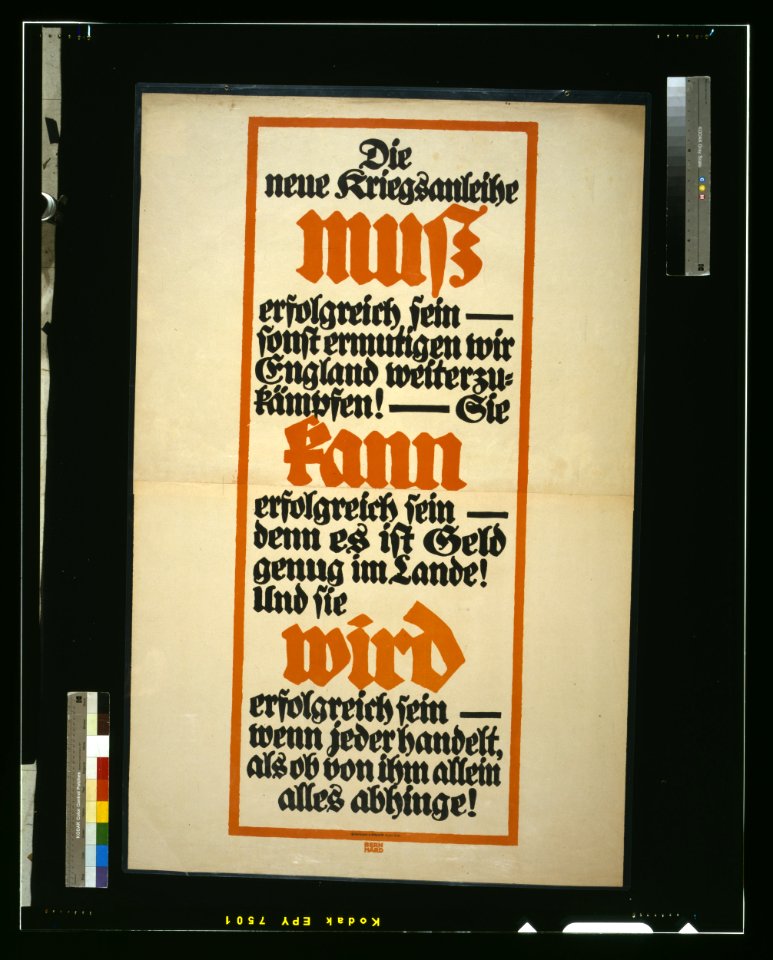 Die
neue Kriegsanleihe
muß
erfolgreich sein —
sonst ermutigen wir
England weiterzu-
kämpfen! — Sie
kann
erfolgreich sein —
denn es ist Geld
genug im Lande!
Und sie
wird
erfolgreich sein —
wenn jeder handelt,
als ob von ihm allein
alles abhinge!
BERN
HARD
KODAK Color Control Patches
Kodak EPY 7501